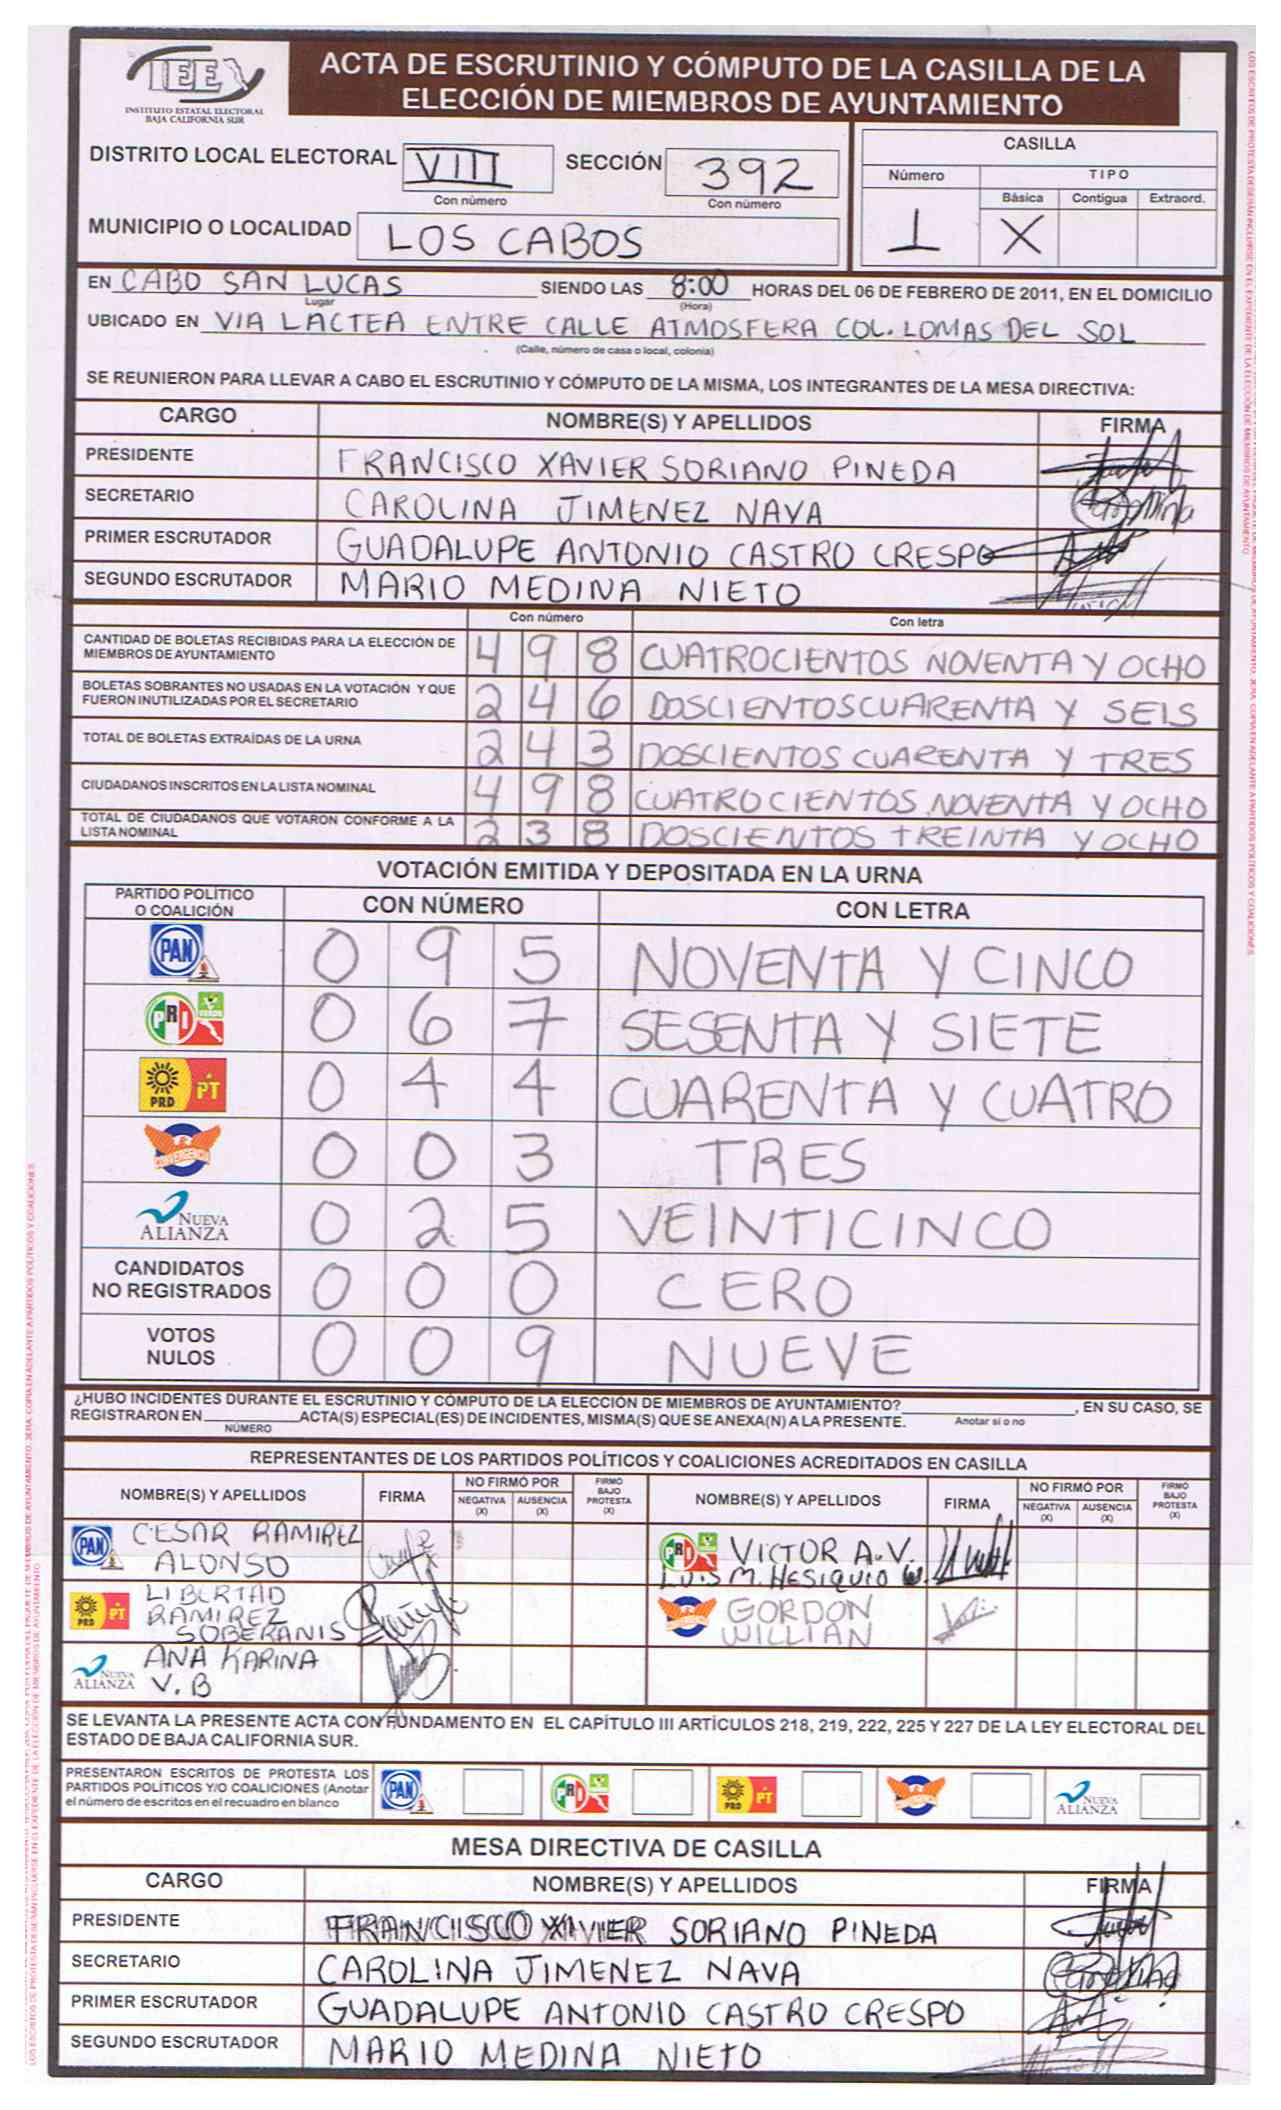 IEE
INSTITUTO ESTATAL ELECTORAL
BAJA CALIFORNIA SUR
ACTA DE ESCRUTINIO Y CÓMPUTO DE LA CASILLA DE LA
ELECCIÓN DE MIEMBROS DE AYUNTAMIENTO
DISTRITO LOCAL ELECTORAL VIII SECCIÓN 392
Con número Con número
MUNICIPIO O LOCALIDAD LOS CABOS
CASILLA
Número TIPO
Básica Contigua Extraord.
1 X
EN CABO SAN LUCAS SIENDO LAS 8:00 HORAS DEL 06 DE FEBRERO DE 2011, EN EL DOMICILIO
Lugar (Hora)
UBICADO EN VIA LACTEA ENTRE CALLE ATMOSFERA COL. LOMAS DEL SOL
(Calle, número de casa o local, colonia)
SE REUNIERON PARA LLEVAR A CABO EL ESCRUTINIO Y CÓMPUTO DE LA MISMA, LOS INTEGRANTES DE LA MESA DIRECTIVA:
CARGO NOMBRE(S) Y APELLIDOS FIRMA
PRESIDENTE FRANCISCO XAVIER SORIANO PINEDA
SECRETARIO CAROLINA JIMENEZ NAVA
PRIMER ESCRUTADOR GUADALUPE ANTONIO CASTRO CRESPO
SEGUNDO ESCRUTADOR MARIO MEDINA NIETO
Con número Con letra
CANTIDAD DE BOLETAS RECIBIDAS PARA LA ELECCIÓN DE
MIEMBROS DE AYUNTAMIENTO 4 9 8 CUATROCIENTOS NOVENTA Y OCHO
BOLETAS SOBRANTES NO USADAS EN LA VOTACIÓN Y QUE
FUERON INUTILIZADAS POR EL SECRETARIO 2 4 6 DOSCIENTOS CUARENTA Y SEIS
TOTAL DE BOLETAS EXTRAÍDAS DE LA URNA 2 4 3 DOSCIENTOS CUARENTA Y TRES
CIUDADANOS INSCRITOS EN LA LISTA NOMINAL 4 9 8 CUATROCIENTOS NOVENTA Y OCHO
TOTAL DE CIUDADANOS QUE VOTARON CONFORME A LA
LISTA NOMINAL 2 3 8 DOSCIENTOS TREINTA Y OCHO
VOTACIÓN EMITIDA Y DEPOSITADA EN LA URNA
PARTIDO POLÍTICO
O COALICIÓN CON NÚMERO CON LETRA
PAN 0 9 5 NOVENTA Y CINCO
PRI VERDE 0 6 7 SESENTA Y SIETE
PRD PT 0 4 4 CUARENTA Y CUATRO
CONVERGENCIA 0 0 3 TRES
NUEVA
ALIANZA 0 2 5 VEINTICINCO
CANDIDATOS
NO REGISTRADOS 0 0 0 CERO
VOTOS
NULOS 0 0 9 NUEVE
¿HUBO INCIDENTES DURANTE EL ESCRUTINIO Y CÓMPUTO DE LA ELECCIÓN DE MIEMBROS DE AYUNTAMIENTO? , EN SU CASO, SE
REGISTRARON EN ACTA(S) ESPECIAL(ES) DE INCIDENTES, MISMA(S) QUE SE ANEXA(N) A LA PRESENTE. Anotar sí o no
NÚMERO
REPRESENTANTES DE LOS PARTIDOS POLÍTICOS Y COALICIONES ACREDITADOS EN CASILLA
NOMBRE(S) Y APELLIDOS FIRMA NO FIRMÓ POR NEGATIVA (X) AUSENCIA (X) FIRMÓ BAJO PROTESTA (X) NOMBRE(S) Y APELLIDOS FIRMA NO FIRMÓ POR NEGATIVA (X) AUSENCIA (X) FIRMÓ BAJO PROTESTA (X)
PAN CESAR RAMIREZ
ALONSO
PRI VICTOR A.V.
LUIS M. HESIQUIO
PRD PT LIBERTAD
RAMIREZ
SOBERANIS
GORDON
WILLIAN
NUEVA
ALIANZA ANA KARINA
V.B
SE LEVANTA LA PRESENTE ACTA CON FUNDAMENTO EN EL CAPÍTULO III ARTÍCULOS 218, 219, 222, 225 Y 227 DE LA LEY ELECTORAL DEL
ESTADO DE BAJA CALIFORNIA SUR.
PRESENTARON ESCRITOS DE PROTESTA LOS
PARTIDOS POLÍTICOS Y/O COALICIONES (Anotar
el número de escritos en el recuadro en blanco
PAN PRI PRD PT NUEVA ALIANZA
MESA DIRECTIVA DE CASILLA
CARGO NOMBRE(S) Y APELLIDOS FIRMA
PRESIDENTE FRANCISCO XAVIER SORIANO PINEDA
SECRETARIO CAROLINA JIMENEZ NAVA
PRIMER ESCRUTADOR GUADALUPE ANTONIO CASTRO CRESPO
SEGUNDO ESCRUTADOR MARIO MEDINA NIETO